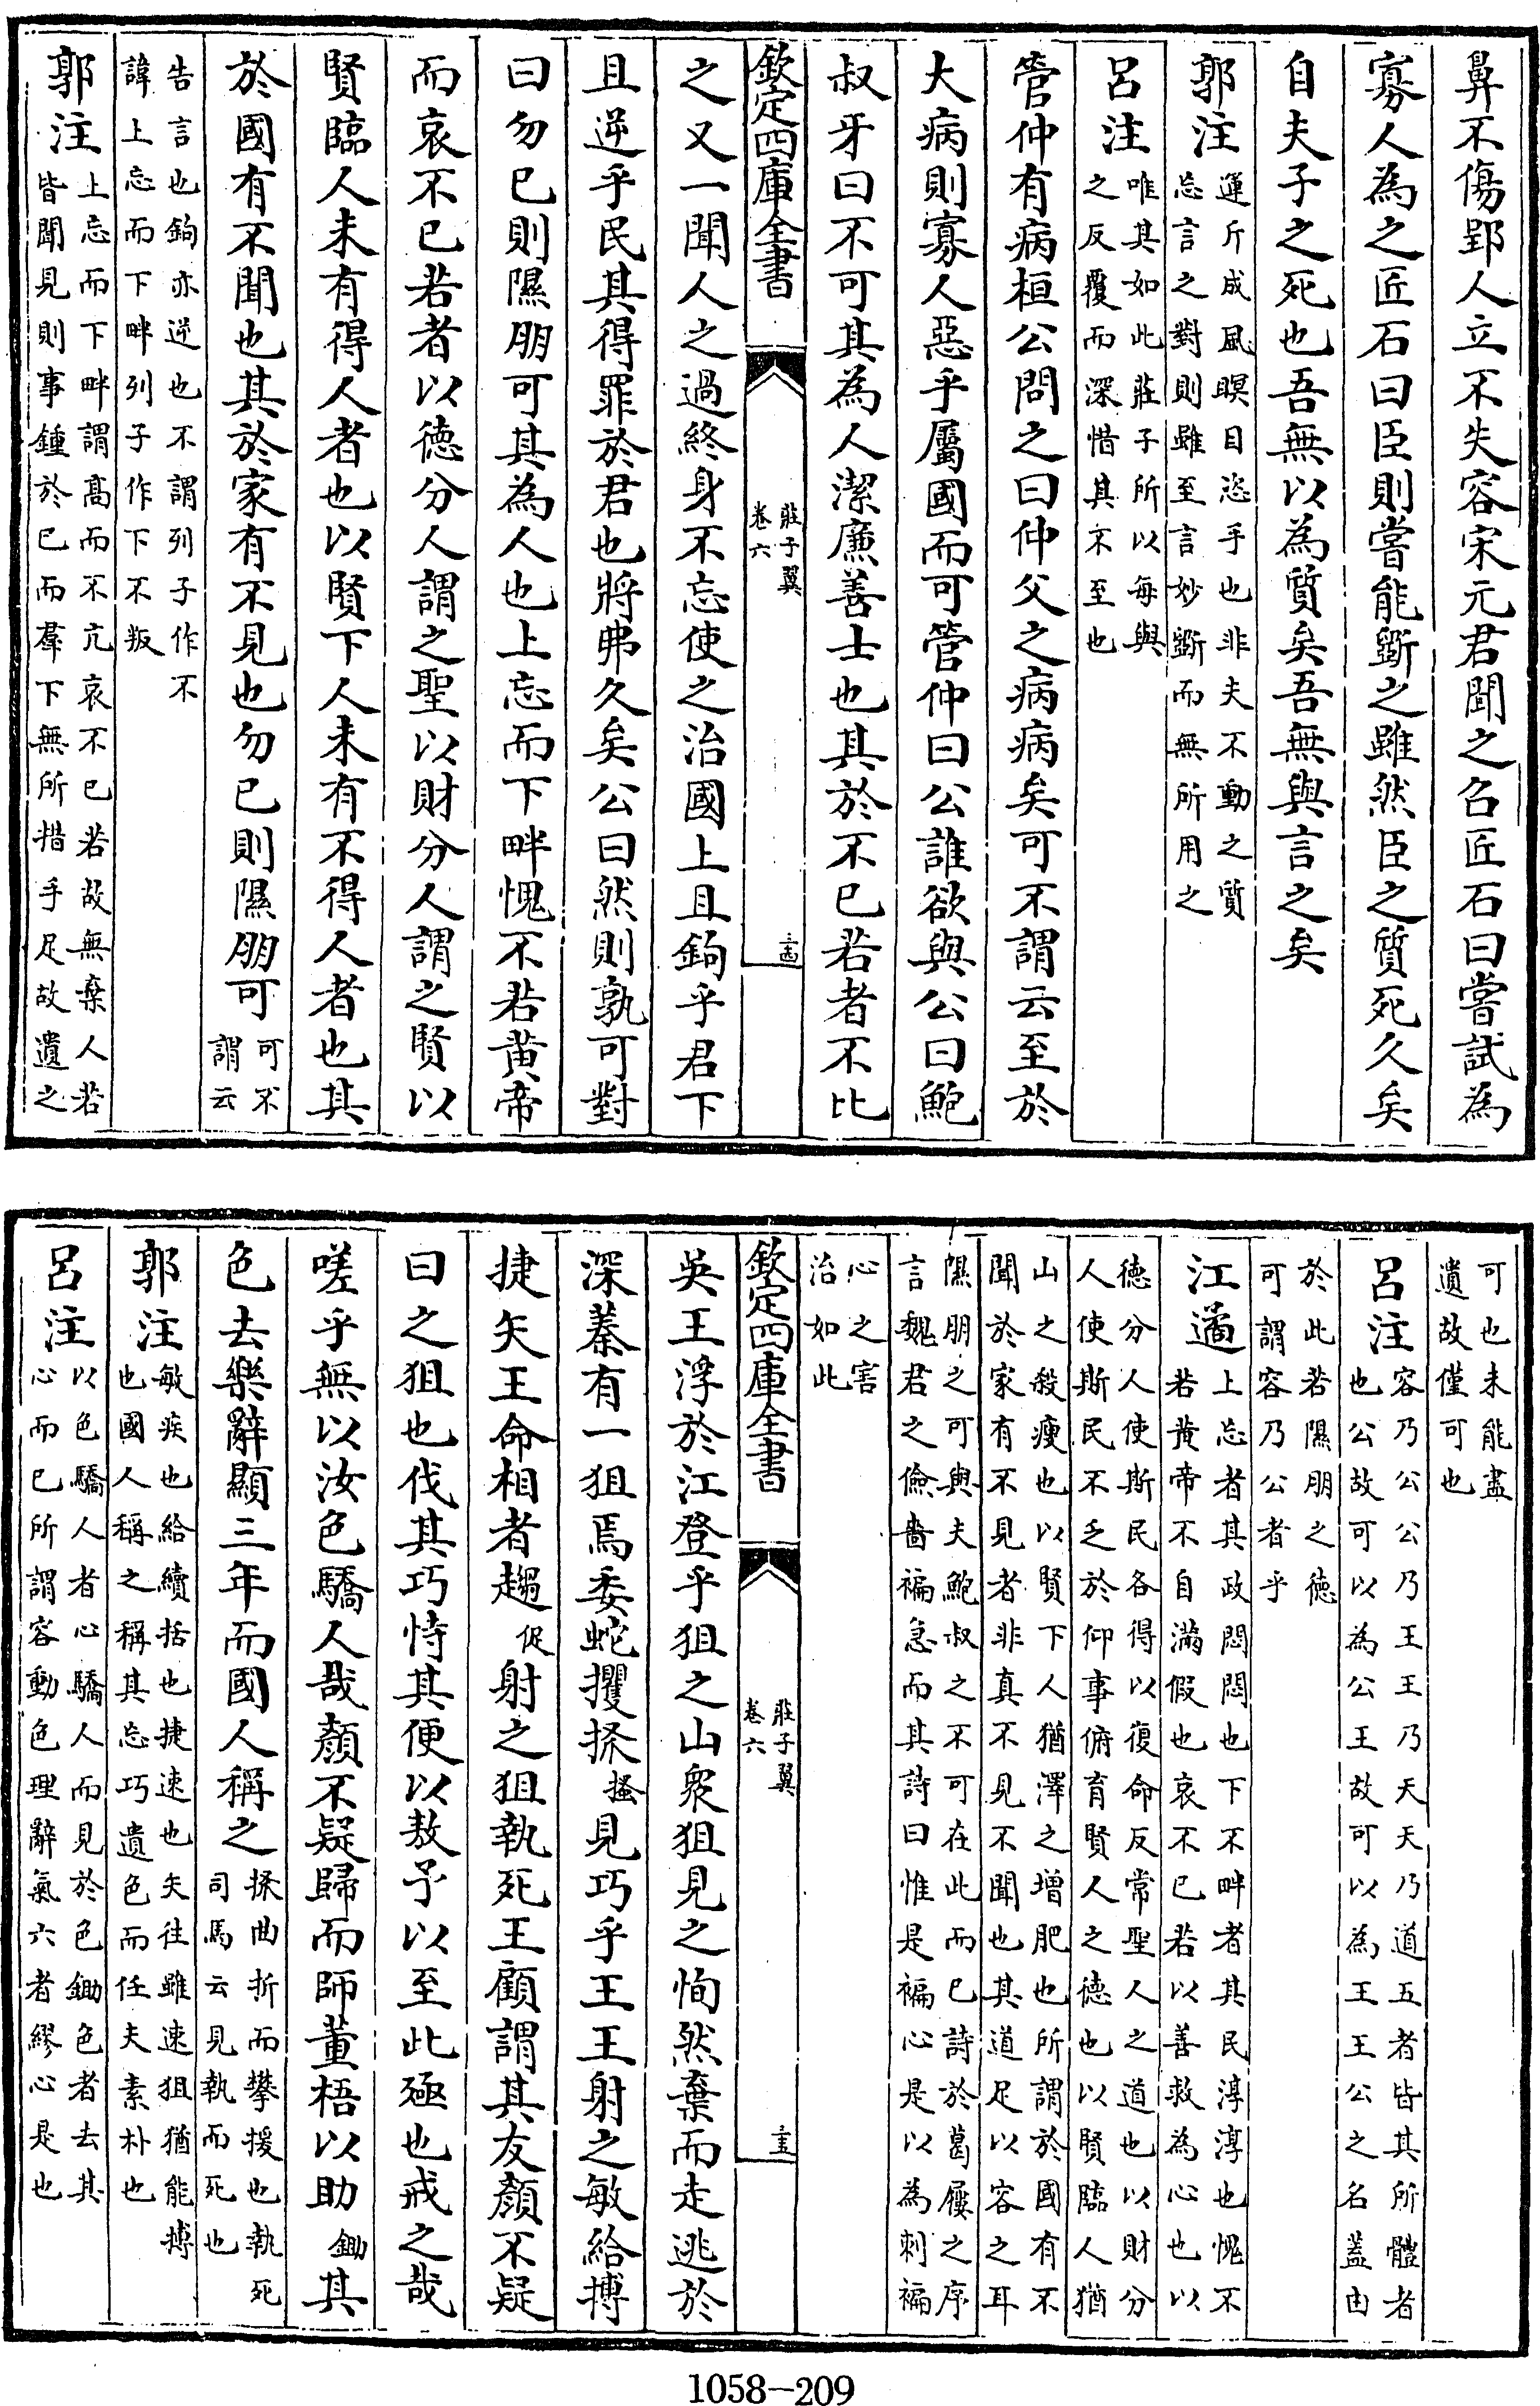 鼻不傷郢人立不失容宋元君聞之召匠石曰嘗試為
寡人為之匠石曰臣則嘗能斵之雖然臣之質死久矣
自夫子之死也吾無以為質矣吾無與言之矣
郭注 運斤成風瞑目恣手也非夫不動之質
忘言之對則雖至言妙斵而無所用之
呂注 唯其如此莊子所以每與
之反覆而深惜其不至也
管仲有病桓公問之曰仲父之病病矣可不謂云至於
大病則寡人惡乎屬國而可管仲曰公誰欲與公曰鮑
叔牙曰不可其為人潔廉善士也其於不已若者不比
欽定四庫全書 莊子翼 卷六 二十四
之又一聞人之過終身不忘使之治國上且鉤乎君下
且逆乎民其得罪於君也將弗久矣公曰然則孰可對
曰勿已則隰朋可其為人也上忘而下畔愧不若黃帝
而哀不已若者以德分人謂之聖以財分人謂之賢以
賢臨人未有得人者也以賢下人未有不得人者也其
於國有不聞也其於家有不見也勿已則隰朋可 可不
謂云
告言也鉤亦逆也不謂列子作不
諱上忘而下畔列子作下不叛
郭注 上忘而下畔謂高而不亢哀不已若故無棄人若
皆聞見則事鍾於已而羣下無所措手足故遺之
可也未能盡
遺故僅可也
呂注 容乃公公乃王王乃天天乃道五者皆其所體者
也公故可以為公王故可以為王王公之名蓋由
於此若隰朋之德
可謂容乃公者乎
江遹 上忘者其政悶悶也下不畔者其民淳淳也愧不
若黃帝不自滿假也哀不已若以善救為心也以
德分人使斯民各得以復命反常聖人之道也以財分
人使斯民不乏於仰事俯育賢人之德也以賢臨人猶
山之殺瘦也以賢下人猶澤之增肥也所謂於國有不
聞於家有不見者非真不見不聞也其道足以容之耳
隰朋之可與夫鮑叔之不可在此而已詩於葛屨之序
言魏君之儉嗇褊急而其詩曰惟是褊心是以為刺褊
心之害
治如此
欽定四庫全書 莊子翼 卷六 二十五
吳王浮於江登乎狙之山衆狙見之恂然棄而走逃於
深蓁有一狙焉委蛇攫搽搔見巧乎王王射之敏給搏
捷矢王命相者趨促射之狙執死王顧謂其友顏不疑
曰之狙也伐其巧恃其便以敖予以至此殛也戒之哉
嗟乎無以汝色驕人哉顏不疑歸而師董梧以助鋤其
色去樂辭顯三年而國人稱之 搽曲折而攀援也執死
司馬云見執而死也
郭注 敏疾也給續括也捷速也矢往雖速狙猶能搏
也國人稱之稱其忘巧遺色而任夫素朴也
呂注 以色驕人者心驕人而見於色鋤色者去其
心而已所謂容動色理辭氣六者繆心是也
1058-209